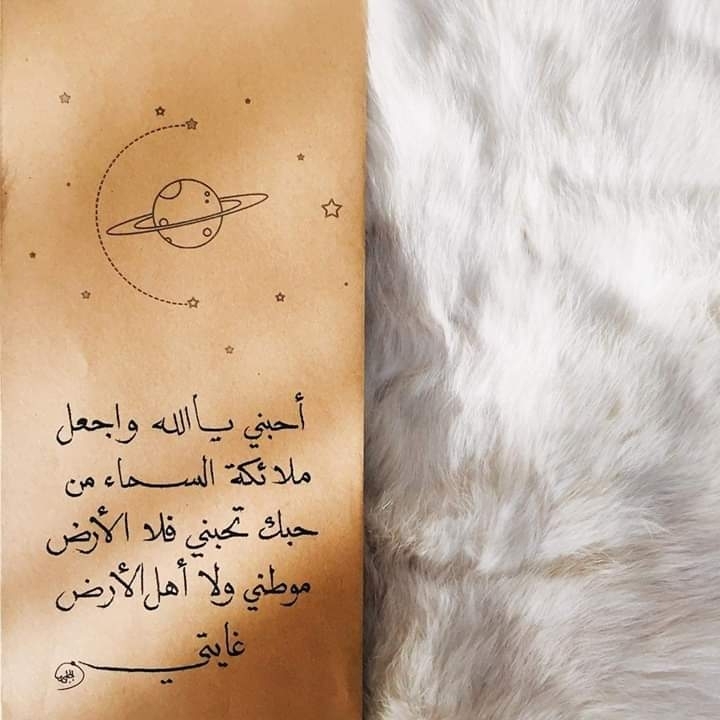 أحبني يا الله واجعل
ملائكة السماء من
حبك تحبني فلا الأرض
موطني ولا أهل الأرض
غايتي